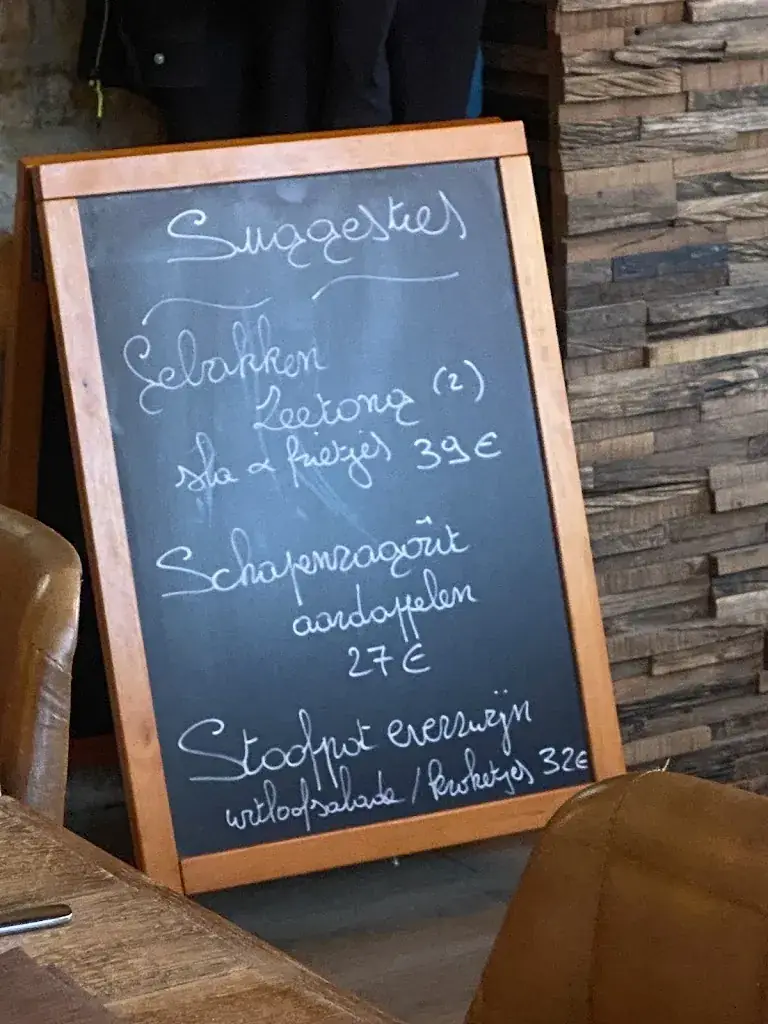 Suggesties
Gebakken
Zeetong (2)
sla & frietjes 39€
Schapenragoût
aardappelen
27€
Stoofpot everzwijn
witloofsalade / kroketjes 32€